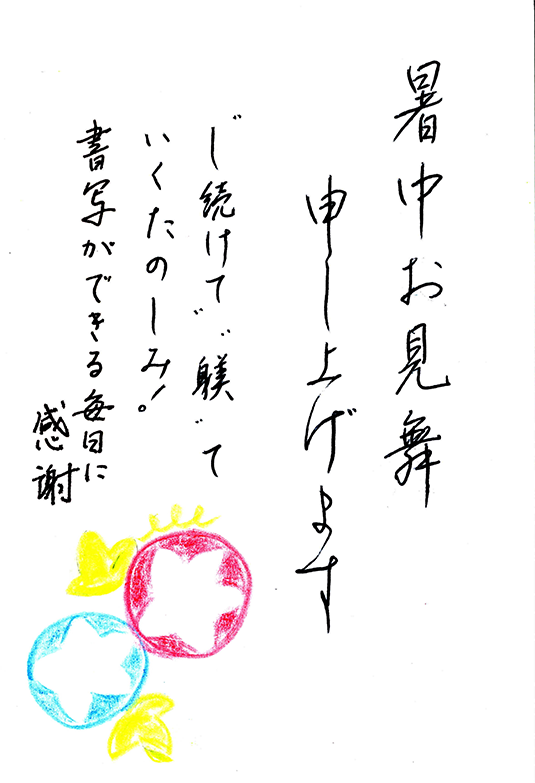 暑中お見舞
申し上げます
〝し続けて〟〝躾〟て
いくたのしみ！。
書写ができる毎日に
感謝